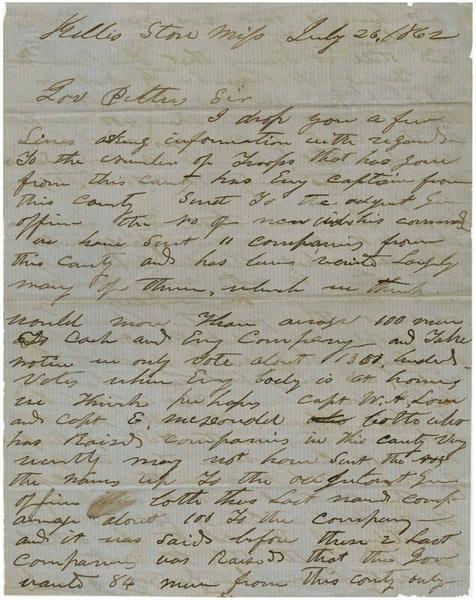 Kellis Store Miss July 26, 1862
Gov Pettus Sir
I drop you a few
Lines asking information with regard
To the number of Troops that has gone
from this county has Eny captain from
this County Sent To the adjut Gen
office the no of men in his command
we have Sent 11 companies from
this county and has been recruited Largely
many of them, which we think
would more Than average 100 men
To Each and Eny Company and Take
notice we only vote about 1300,
Votes when Eny body is at home,
we Think perhaps Capt W. A. Love
and Capt E. McDonald both who
has Raised companies in this county very
recently may not have Sent the
the names up To the adjutant Gen
office both thes Last named comp
average about 100 To the company
and it was Said before these 2 Last
companies was Raised that the Gov
wants 84 men from this county only